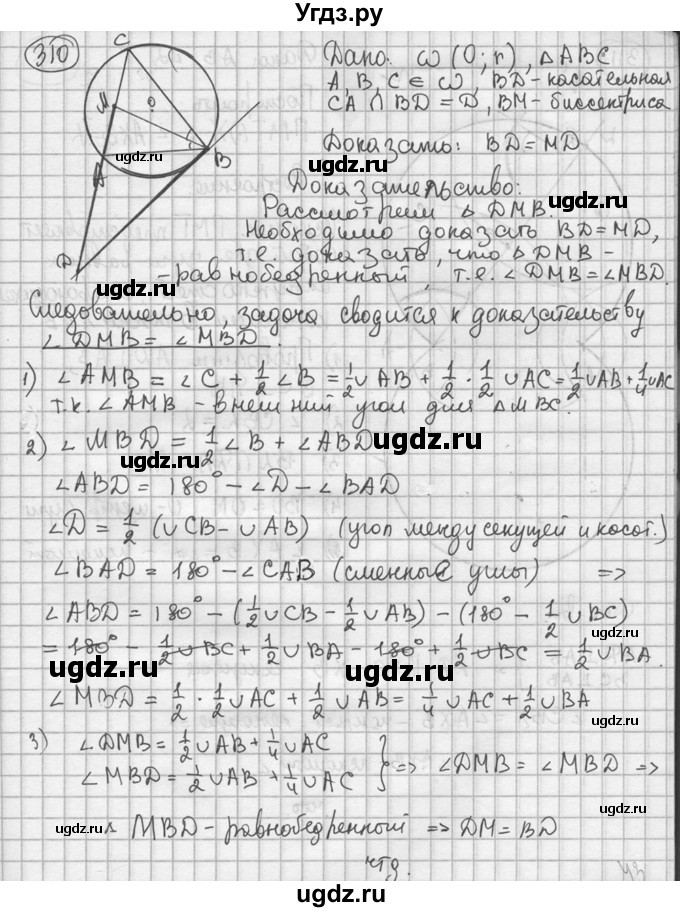 Угдз.ру
310
Дано: ω (O; r), △ABC
A, B, C ∈ ω, BD - касательная
CA ∩ BD = D, BM - биссектриса
Доказать: BD = MD
Доказательство:
Рассмотрим △ DMB.
Необходимо доказать BD = MD,
т.е. доказать, что △ DMB -
- равнобедренный, т.е. ∠ DMB = ∠MBD.
Следовательно, задача сводится к доказательству
∠ DMB = ∠ MBD.
1) ∠ AMB = ∠ C + 1/2 ∠ B = 1/2 ∪ AB + 1/2 · 1/2 ∪ AC = 1/2 ∪ AB + 1/4 ∪ AC
т.к. ∠ AMB - внешний угол для △MBC.
2) ∠ MBD = 1/2 ∠ B + ∠ ABD
∠ ABD = 180° - ∠ D - ∠ BAD
∠ D = 1/2 (∪ CB - ∪ AB) (угол между секущей и касат.)
∠ BAD = 180° - ∠ CAB (смежные углы) =>
∠ ABD = 180° - (1/2 ∪ CB - 1/2 ∪ AB) - (180° - 1/2 ∪ BC)
= 180° - 1/2 ∪ BC + 1/2 ∪ BA - 180° + 1/2 ∪ BC = 1/2 ∪ BA.
∠ MBD = 1/2 · 1/2 ∪ AC + 1/2 ∪ AB = 1/4 ∪ AC + 1/2 ∪ BA
3) ∠ DMB = 1/2 ∪ AB + 1/4 ∪ AC
∠ MBD = 1/2 ∪ AB + 1/4 ∪ AC } => ∠DMB = ∠ MBD =>
△ MBD - равнобедренный => DM = BD
чтд.
C
M
O
A
B
D
udgz.ru